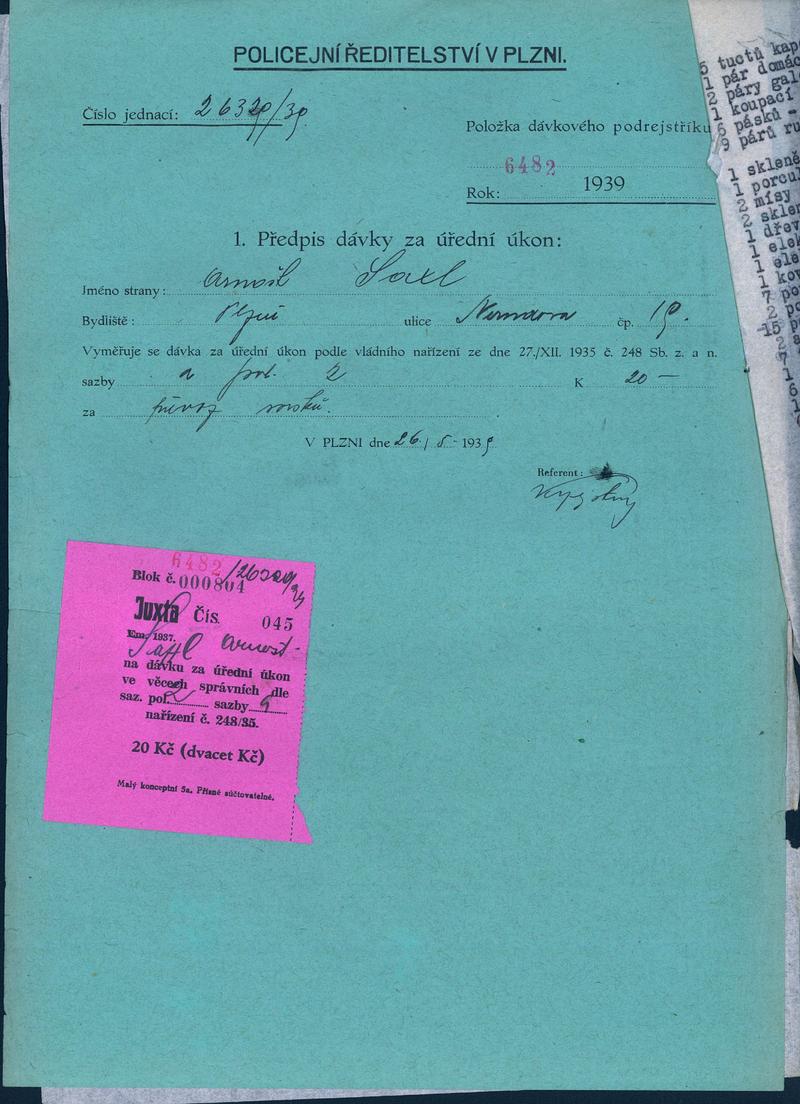 POLICEJNÍ ŘEDITELSTVÍ V PLZNI.
Číslo jednací: 26320/39
Položka dávkového podrejstříku
6482
Rok: 1939
1. Předpis dávky za úřední úkon:
Jméno strany: Arnošt Saxl
Bydliště: Plzeň ulice Nerudova čp. 19.
Vyměřuje se dávka za úřední úkon podle vládního nařízení ze dne 27./XII. 1935 č. 248 Sb. z. a n.
sazby a pol. 2 K 20 —
za převoz
V PLZNI dne 26./8.-1939
Referent:
6482
Blok č. 000804
Juxta Čís. 045
Em. 1937.
Saxl Arnošt
na dávku za úřední úkon
ve věcech správních dle
saz. pol. 2 sazby a
nařízení č. 248/35.
20 Kč (dvacet Kč)
Malý konceptní 5a. Přísně súčtovatelné.
5 tuctů kap
1 pár domác
2 páry galo
1 koupací
6 pásků -
9 párů ru
1 skleně
1 porcul
2 mísy
2 sklen
1 dřev
1 elek
1 ele
1 kov
7 po
2 po
15 p
2 s
7
1
6
1